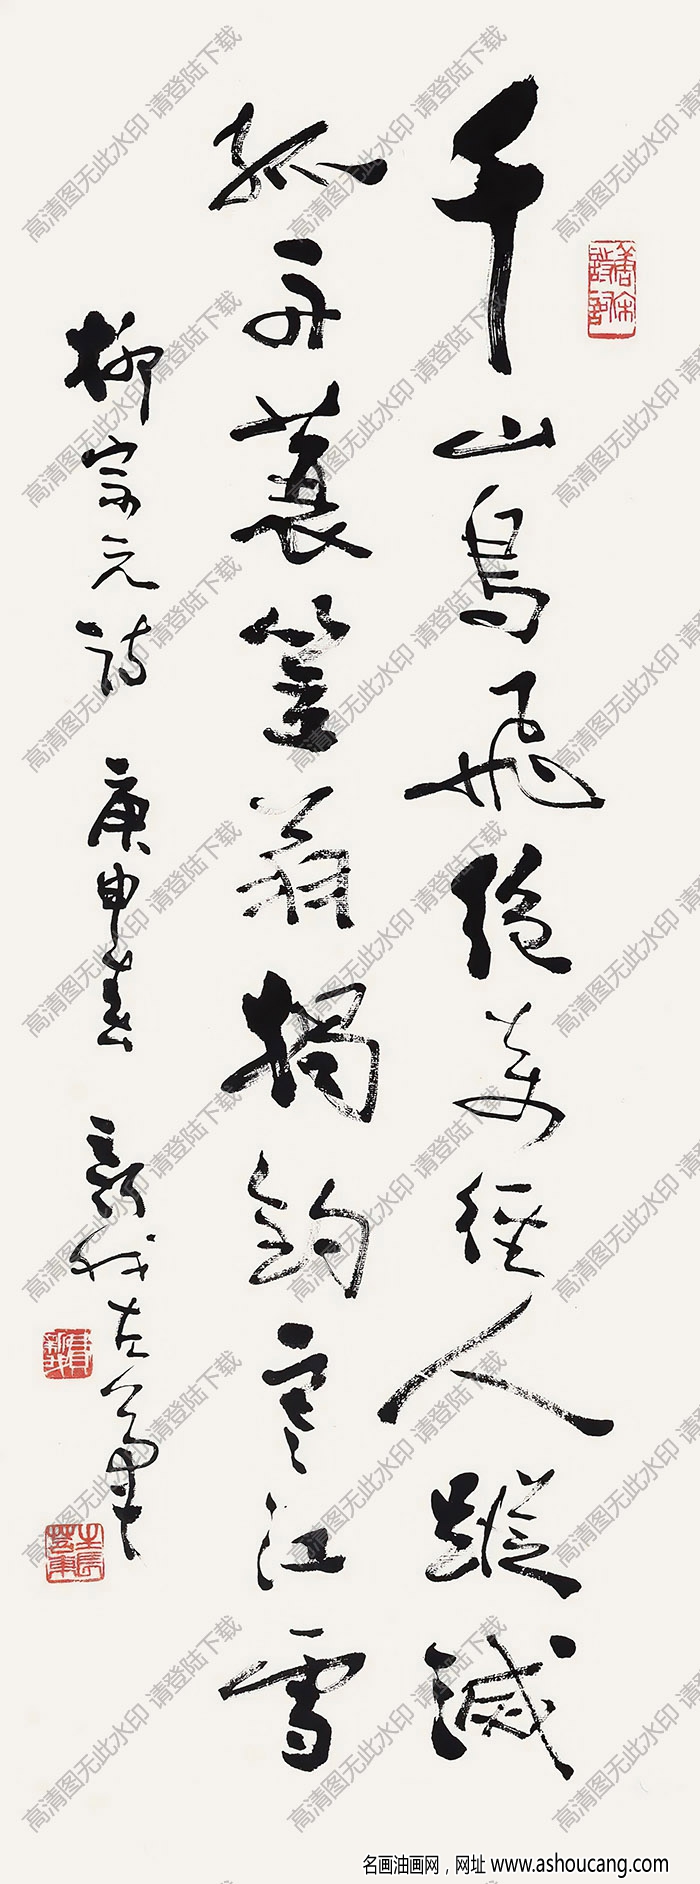 千山鳥飛絕萬徑人蹤滅
孤舟蓑笠翁獨釣寒江雪
柳宗元詩 庚申春 新我左筆
高清图无此水印 请登陆下载
名画油画网，网址 www.ashoucang.com